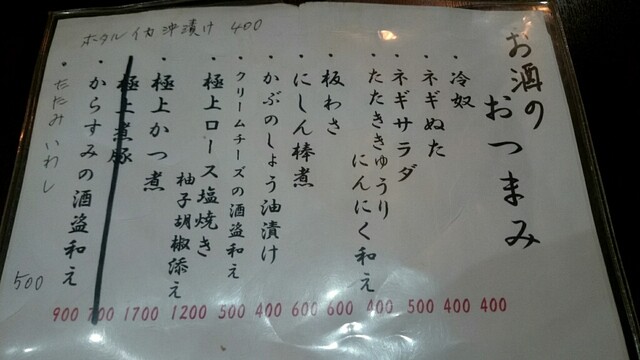 お酒の
おつまみ
・冷奴 400
・ネギぬた 400
・ネギサラダ 500
・たたききゅうり
にんにく和え 400
・板わさ 600
・にしん棒煮 600
・かぶのしょう油漬け 400
・クリームチーズの酒盗和え 500
・極上ロース塩焼き
柚子胡椒添え 1200
・極上かつ煮 1700
・極上煮豚 700
・からすみの酒盗和え 900
・たたみいわし 500
ホタルイカ沖漬け 400